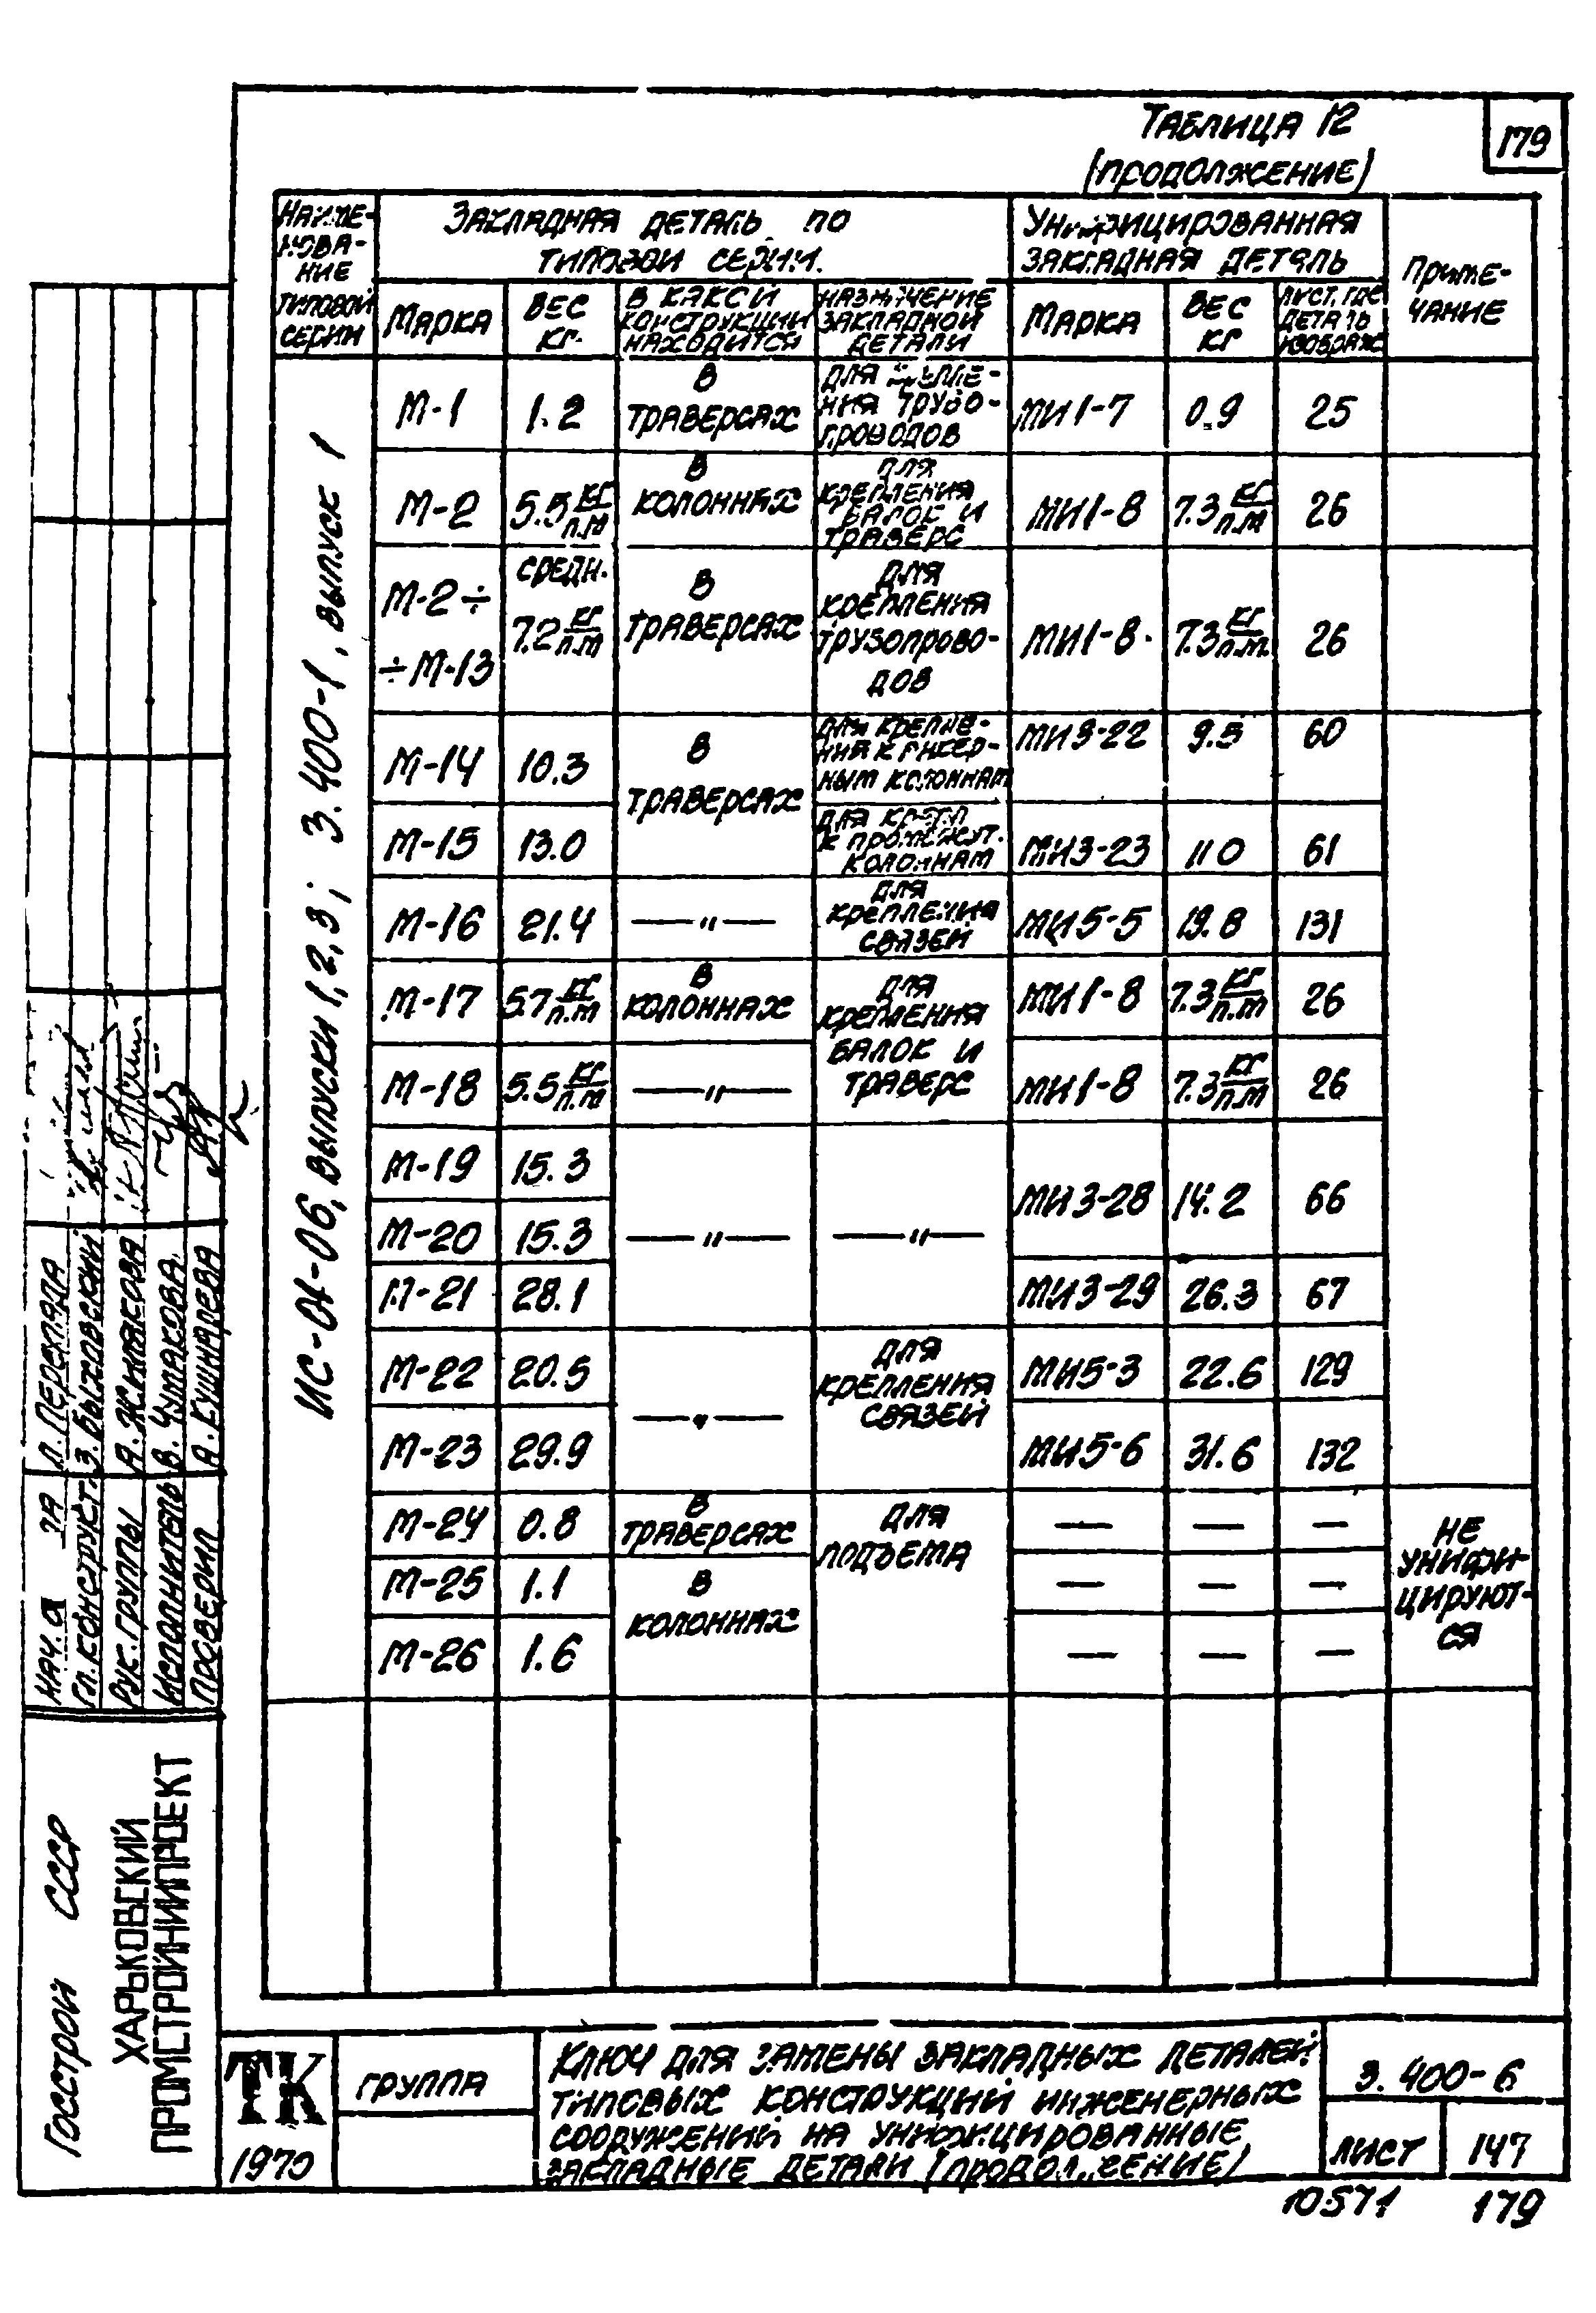 Таблица 12
(продолжение)
179
Наиме-
нова-
ние
типовой
серии
Закладная деталь по
типовой серии.
Унифицированная
закладная деталь
Приме-
чание
Марка
вес
кг.
в какой
конструкции
находится
назначение
закладной
детали
Марка
вес
кг
лист, где
деталь
изображ.
ИС-01-06, выпуски 1,2,3; 3.400-1, выпуск 1
М-1 1.2 в траверсах для крепле-
ния трубо-
проводов МИ1-7 0.9 25
М-2 5.5 кг/п.м в колоннах для
крепления
балок и
траверс МИ1-8 7.3 кг/п.м 26
М-2÷
÷М-13 средн.
7.2 кг/п.м в траверсах для
крепления
трубопрово-
дов МИ1-8. 7.3 кг/п.м. 26
М-14 10.3 в траверсах для крепле-
ния к анкер-
ным колоннам МИ3-22 9.5 60
М-15 13.0 для крепл
к промежут.
колоннам МИ3-23 11 0 61
М-16 21.4 —"— для
крепления
связей МИ5-5 19.8 131
М-17 5.7 кг/п.м в колоннах для
крепления
балок и
траверс МИ1-8 7.3 кг/п.м 26
М-18 5.5 кг/п.м —"— МИ1-8 7.3 кг/п.м 26
М-19 15.3 МИ3-28 14.2 66
М-20 15.3 —"— —"—
М-21 28.1 МИ3-29 26.3 67
М-22 20.5 —"— для
крепления
связей МИ5-3 22.6 129
М-23 29.9 МИ5-6 31.6 132
М-24 0.8 в траверсах для
подъема — — — не
унифи-
цируют-
ся
М-25 1.1 в
колоннах — — —
М-26 1.6 — — —
Нач.
Гл. конструкт.
Рук. группы
Исполнитель
Проверил
З. Быховский
А. Жилякова
В. Чумакова
А. Кушнарева
Госстрой СССР
ХАРЬКОВСКИЙ
ПРОМСТРОЙНИИПРОЕКТ
ТК
1970
группа
Ключ для замены закладных деталей
типовых конструкций инженерных
сооружений на унифицированные
закладные детали (продолжение)
3.400-6
лист 147
10571 179